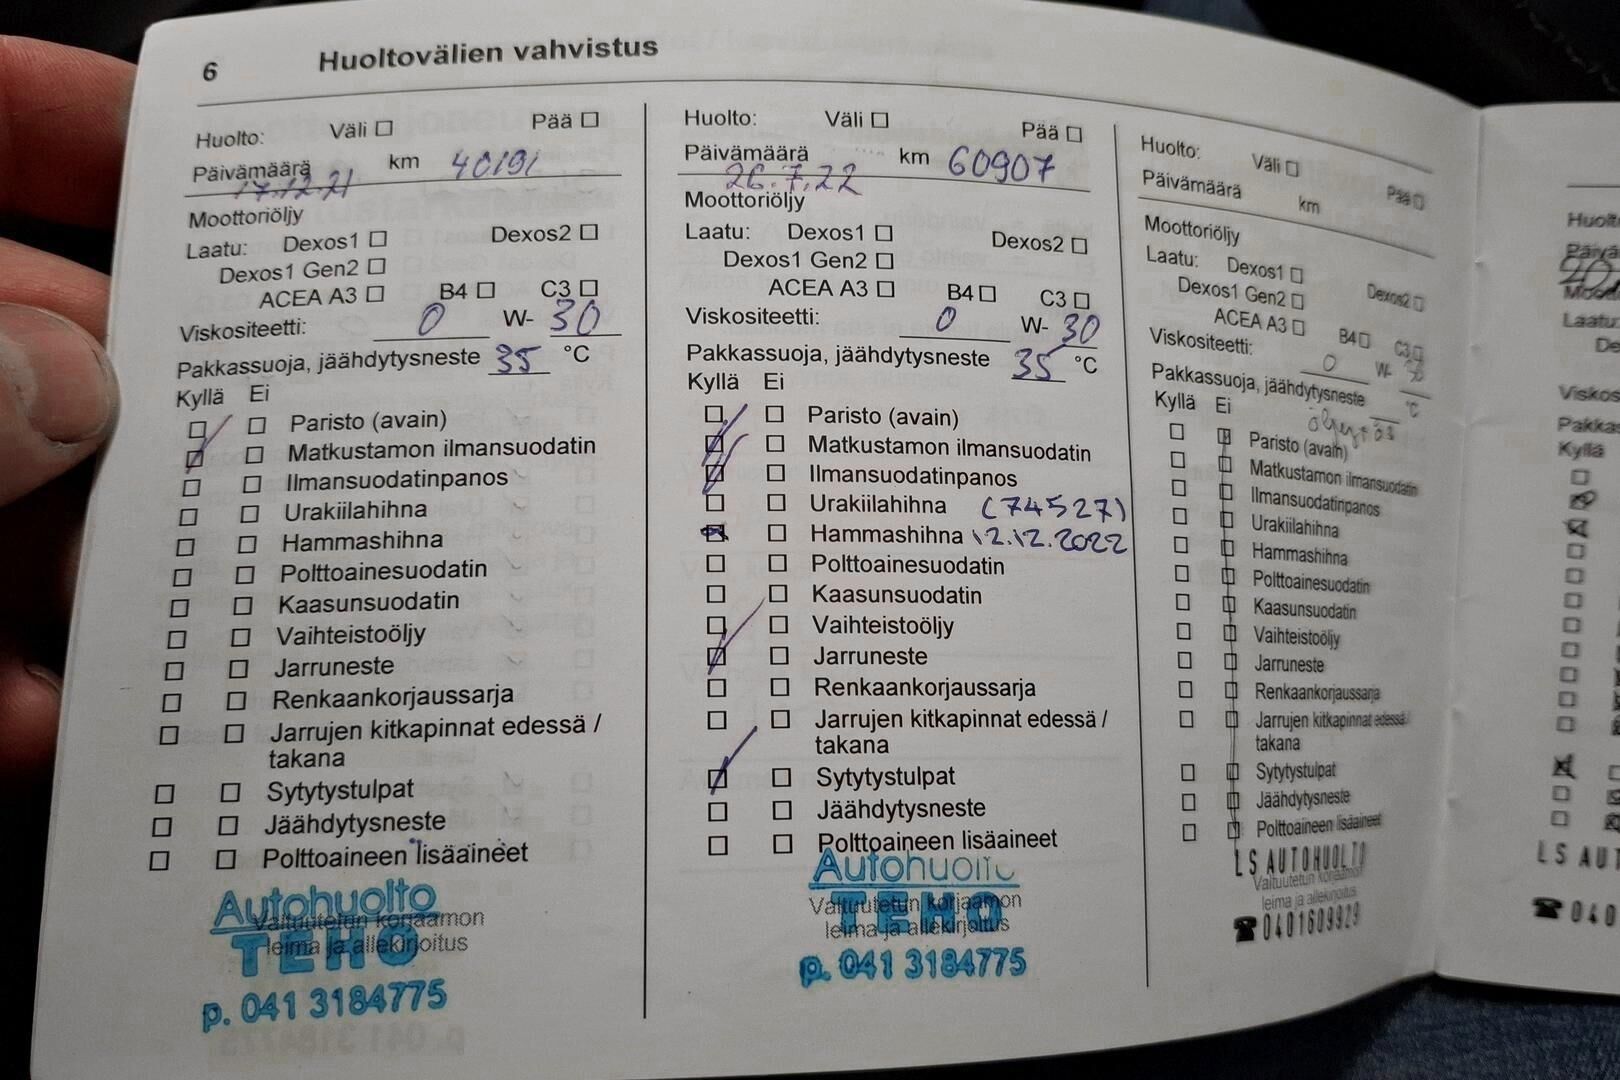 6 Huoltovälien vahvistus
Huolto: Väli Pää
Päivämäärä km 40191
17.12.21
Moottoriöljy
Laatu: Dexos1 Dexos2
Dexos1 Gen2
ACEA A3 B4 C3
Viskositeetti: 0 W- 30
Pakkassuoja, jäähdytysneste 35 °C
Kyllä Ei
Paristo (avain)
Matkustamon ilmansuodatin
Ilmansuodatinpanos
Urakiilahihna
Hammashihna
Polttoainesuodatin
Kaasunsuodatin
Vaihteistoöljy
Jarruneste
Renkaankorjaussarja
Jarrujen kitkapinnat edessä /
takana
Sytytystulpat
Jäähdytysneste
Polttoaineen lisäaineet
Autohuolto
Valtuutetun korjaamon
TEHO
leima ja allekirjoitus
p. 041 3184775
Huolto: Väli Pää
Päivämäärä km 60907
26.7.22
Moottoriöljy
Laatu: Dexos1 Dexos2
Dexos1 Gen2
ACEA A3 B4 C3
Viskositeetti: 0 W- 30
Pakkassuoja, jäähdytysneste 35 °C
Kyllä Ei
Paristo (avain)
Matkustamon ilmansuodatin
Ilmansuodatinpanos
Urakiilahihna (74527)
Hammashihna 12.12.2022
Polttoainesuodatin
Kaasunsuodatin
Vaihteistoöljy
Jarruneste
Renkaankorjaussarja
Jarrujen kitkapinnat edessä /
takana
Sytytystulpat
Jäähdytysneste
Polttoaineen lisäaineet
Autohuolto
Valtuutetun korjaamon
TEHO
leima ja allekirjoitus
p. 041 3184775
Huolto: Väli Pää
Päivämäärä km
Moottoriöljy
Laatu: Dexos1 Dexos2
Dexos1 Gen2
ACEA A3 B4 C3
Viskositeetti: 0 W- 30
Pakkassuoja, jäähdytysneste °C
Kyllä Ei
Paristo (avain)
Matkustamon ilmansuodatin
Ilmansuodatinpanos
Urakiilahihna
Hammashihna
Polttoainesuodatin
Kaasunsuodatin
Vaihteistoöljy
Jarruneste
Renkaankorjaussarja
Jarrujen kitkapinnat edessä /
takana
Sytytystulpat
Jäähdytysneste
Polttoaineen lisäaineet
LS AUTOHUOLTO
Valtuutetun korjaamon
leima ja allekirjoitus
☎0401609929
Huolt
Laatu:
De
Viskos
Pakkas
Kyllä
LS AUT
☎040